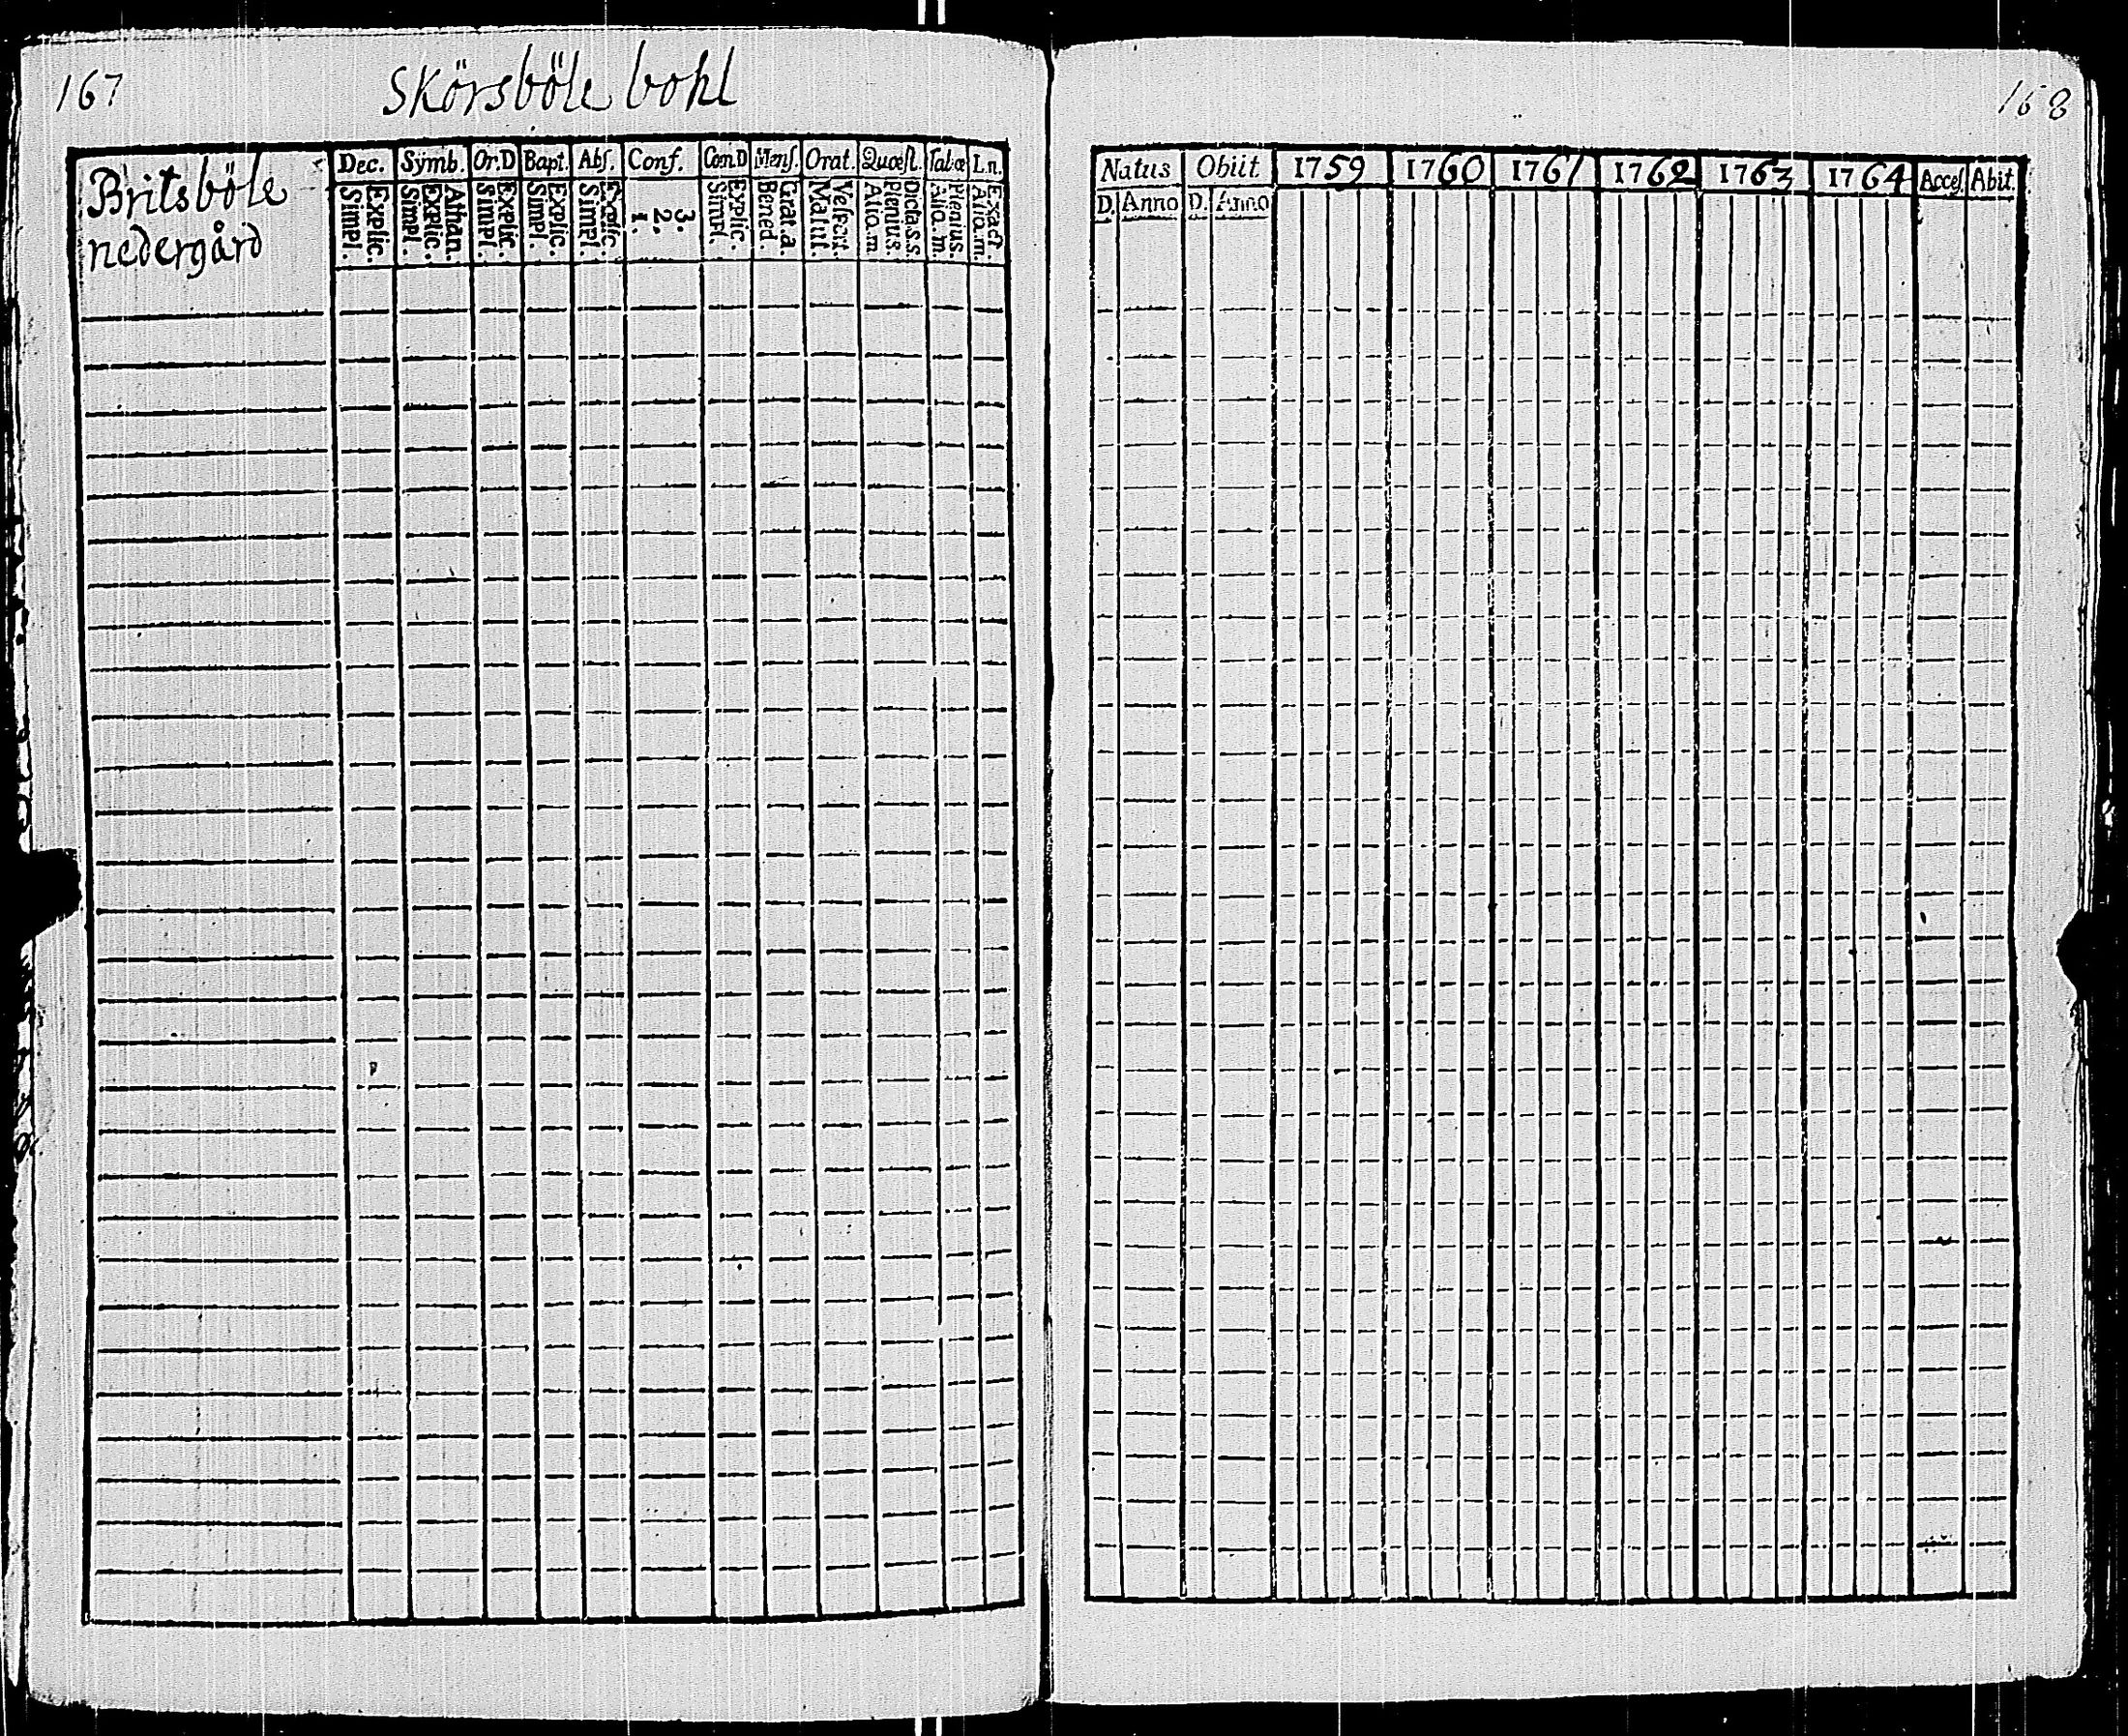 167
Skörsböle bohl
Britsböle
nedergård
Dec. Symb. Or.D Bapt. Abſ. Conf. Com.D Menſ. Orat. Quæſt. Tabæ Ln.
Simpl. Explic. Simpl. Explic. Athan. Simpl. Explic. Simpl. Explic. Simpl. Explic. 1. 2. 3. Simpl. Explic. Bened. Grat.a. Matut. Veſpert. Alio.m Plenius. Dicta.s.s. Alio.m Plenius. Alio.m. Exact.
168
Natus Obiit 1759 1760 1761 1762 1763 1764 Acceſ Abit.
D. Anno D. Anno